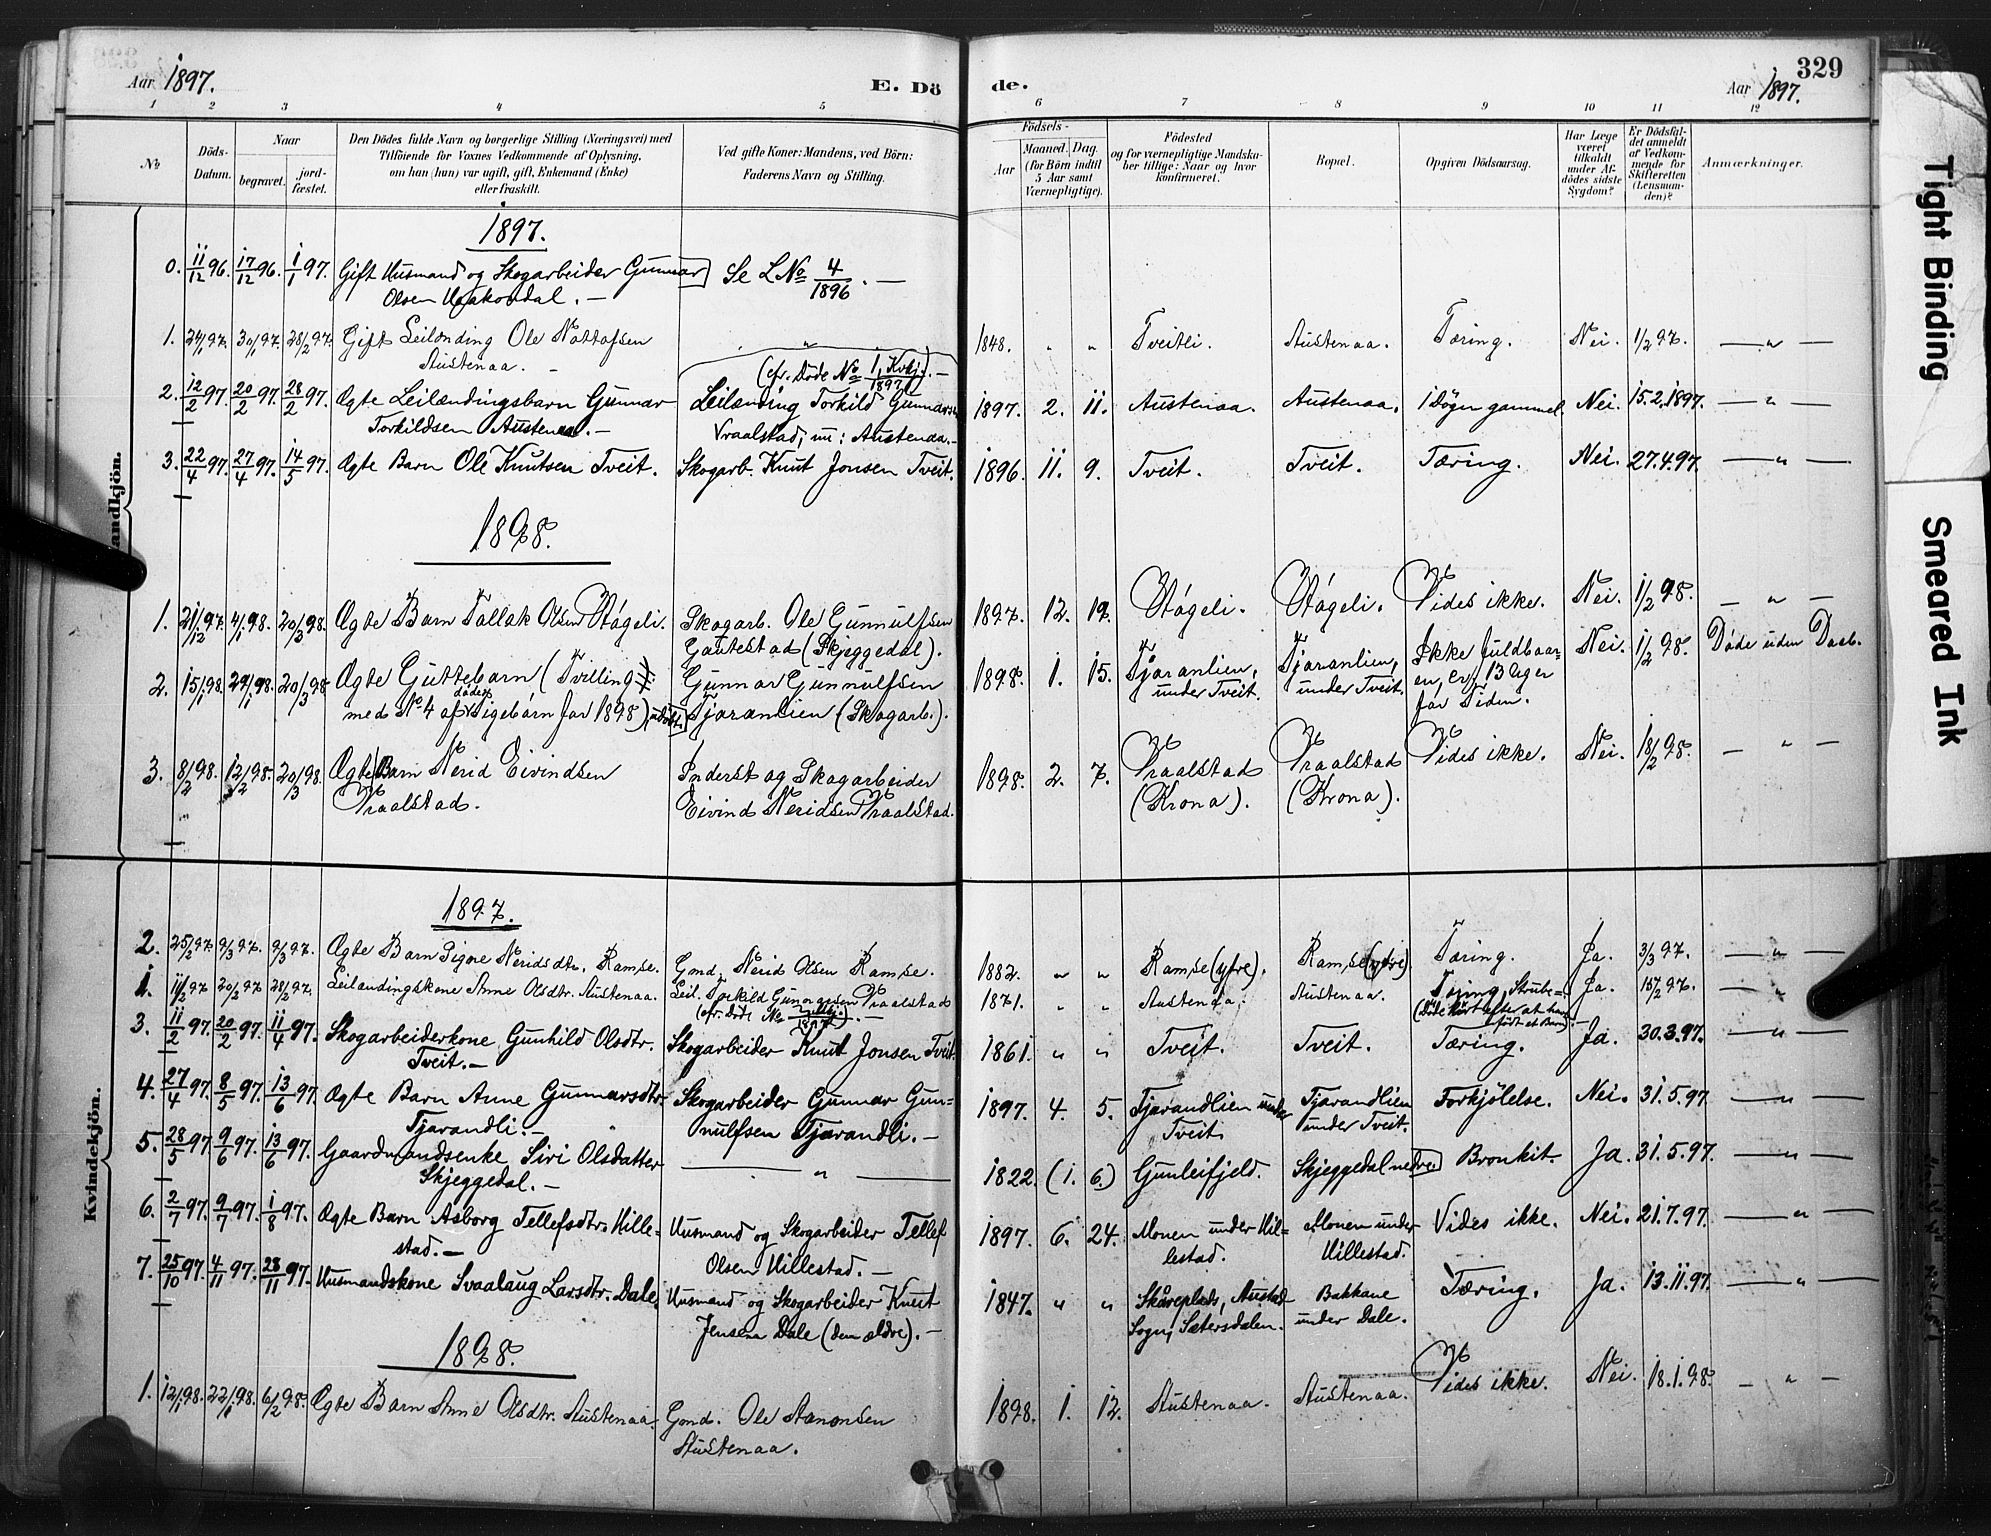 Aar 1897.
E. Dö
de.
329
Aar 1897.
1 2 3 4 5 6 7 8 9 10 11 12
No
Döds-Datum.
Naar
begravet.
jord-fæstet.
Den Dödes fulde Navn og borgerlige Stilling (Næringsvei) med
Tilföiende for Voxnes Vedkommende af Oplysning,
om han (hun) var ugift, gift, Enkemand (Enke)
eller fraskilt.
Ved gifte Koner: Mandens, ved Börn:
Faderens Navn og Stilling.
Födsels-
Aar
Maaned. Dag.
(for Börn indtil
5 Aar samt
Værnepligtige).
Födested
og for værnepligtige Mandska-
ber tillige: Naar og hvor
konfirmeret.
Bopæl.
Opgiven Dödsaarsag.
Har Læge
været
tilkaldt
under Af-
dödes sidste
Sygdom?
Er Dödsfal-
det anmeldt
af Vedkom-
mende for
Skifteretten
(Lensman-
den)?
Anmærkninger.
Mandkjön.
1897.
0. 11/12 96. 17/12 96. 1/1 97. Gift Husmand og Skogarbeider Gunnar Se L No 4/1896. —
Olsen Haakondal. —
1. 24/1 97. 30/1 97. 28/2 97. Gift Leilænding Ole Nottofsen " 1848. " " Tveitli. Austenaa. Tæring. Nei. 1/2 97. — " —
Austenaa. —
(cfr. Døde No 1, Kvkj. 1897). —
2. 12/2 97. 20/2 97. 28/2 97. Ægte Leilændingsbarn Gunnar Leilænding Torkild Gunnarsen 1897. 2. 11. Austenaa. Austenaa. 1 Døgn gammel. Nei. 15.2.1897. — " —
Torkildsen Austenaa. — Vraalstad, nu: Austenaa. —
3. 22/4 97. 27/4 97. 14/5 97. Ægte Barn Ole Knutsen Tveit. Skogarb. Knut Jonsen Tveit. 1896. 11. 9. Tveit. Tveit. Tæring. Nei. 27.4.97. — " —
1898.
1. 21/12 97. 4/1 98. 20/3 98. Ægte Barn Tallak Olsen Høgeli. Skogarb. Ole Gunnulfsen 1897. 12. 19. Høgeli. Høgeli. Vides ikke. Nei. 1/2 98. — " —
Gautestad (Skjeggedal).
2. 15/1 98. 29/1 98. 20/3 98. Ægte Guttebarn (Tvilling Gunnar Gunnulfsen 1898. 1. 15. Tjøranlien, Tjaranlien, Ikke fuldbaar- Nei. 1/2 98. Døde uden Daab.
med No 4 af døde Pigebørn for 1898), udøbt. Tjaranlien (Skogarb.). under Tveit. under Tveit. en, er 13 Uger
for Tiden.
3. 8/2 98. 12/2 98. 20/3 98. Ægte Barn Nerid Eivindsen Inderst og Skogarbeider 1898. 2. 7. Vraalstad Vraalstad Vides ikke. Nei. 18/2 98. — " —
Vraalstad. Eivind Neridsen Vraalstad. (Krona). (Krona).
Kvindekjön.
1897.
2. 25/2 97. 9/3 97. 9/3 97. Ægte Barn Signe Neridsdtr. Ramse. Gmd. Nerid Olsen Ramse. 1882. " " Ramse (yfre). Ramse (yfre). Tæring. Ja. 3/3 97. — " —
1. 11/2 97. 20/2 97. 28/2 97. Leilændingskone Anne Olsdtr. Austenaa. Leil. Torkild Gunnarsen Vraalstad 1871. " " Austenaa. Austenaa. Tæring, Strube-. Ja. 15/2 97. — " —
(Døde kort efter at have
født et Barn). —
3. 11/2 97. 20/2 97. 11/4 97. Skogarbeiderkone Gunhild Olsdtr. Skogarbeider Knut Jonsen Tveit. 1861. " " Tveit. Tveit. Tæring. Ja. 30.3.97. — " —
Tveit. —
4. 27/4 97. 8/5 97. 13/6 97. Ægte Barn Anne Gunnarsdtr. Skogarbeider Gunnar Gun- 1897. 4. 5. Tjarandlien under Tjarandlien Forkjölelse. Nei. 31.5.97. — " —
Tjarandli. — nulfsen Tjarandli. — Tveit. under Tveit.
5. 28/5 97. 9/6 97. 13/6 97. Gaardmandsenke Siri Olsdatter — " — 1822. (1. 6.) Gunleifjeld. Skjeggedal nedre. Bronkit. Ja. 31.5.97. — " —
Skjeggedal. —
6. 2/7 97. 9/7 97. 1/8 97. Ægte Barn Asborg Tellefsdtr. Hille- Husmand og Skogarbeider Tellef 1897. 6. 24. Monen under Hil- Monen under Vides ikke. Nei. 21.7.97. — " —
stad. — Olsen Hillestad. — lestad. Hillestad.
7. 25/10 97. 4/11 97. 28/11 97. Husmandskone Svaalaug Larsdtr. Dale. Husmand og Skogarbeider Knut 1847. " " Skåreplads, Austad Bakkane Tæring. Ja. 13.11.97. — " —
Jensen Dale (den ældre). — Sogn, Sætersdalen. under Dale.
1898.
1. 12/1 98. 22/1 98. 6/2 98. Ægte Barn Anne Olsdtr. Austenaa. Gmd. Ole Aanonsen 1898. 1. 12. Austenaa. Austenaa. Vides ikke. Nei. 18.1.98. — " —
Austenaa.
Tight Binding
Smeared Ink